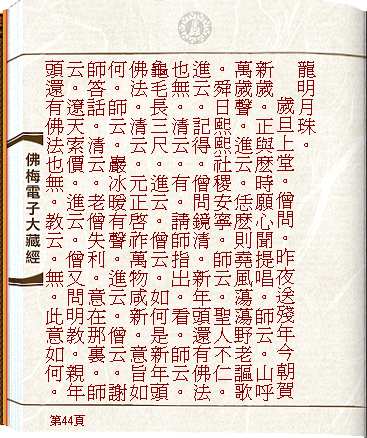 龍明月珠。
歲旦上堂。僧問。昨夜送殘年今朝賀
新歲。正與麼時願心聞提唱。師云。山呼
萬歲聲。進云。恁麼則堯風蕩蕩野老謳歌
。舜日熙熙社稷安寧。師云。聖人不仁。
進云。記得。僧問鏡清。新年頭還有佛法
也無。清云。有。請師指出看。師云。
龜毛長三尺。進云。如何是新年頭
佛法。清云。元正啓祚萬物咸新。意旨如
何。師云。嚴冰暖有聲。進云。僧云。謝
師答話。清云。老僧失利。意在那裏。師
云。遼天索價。進云。僧又問明教。親年
頭還有佛法也無。教云。無。此意如何。
佛梅電子大藏經
第44頁